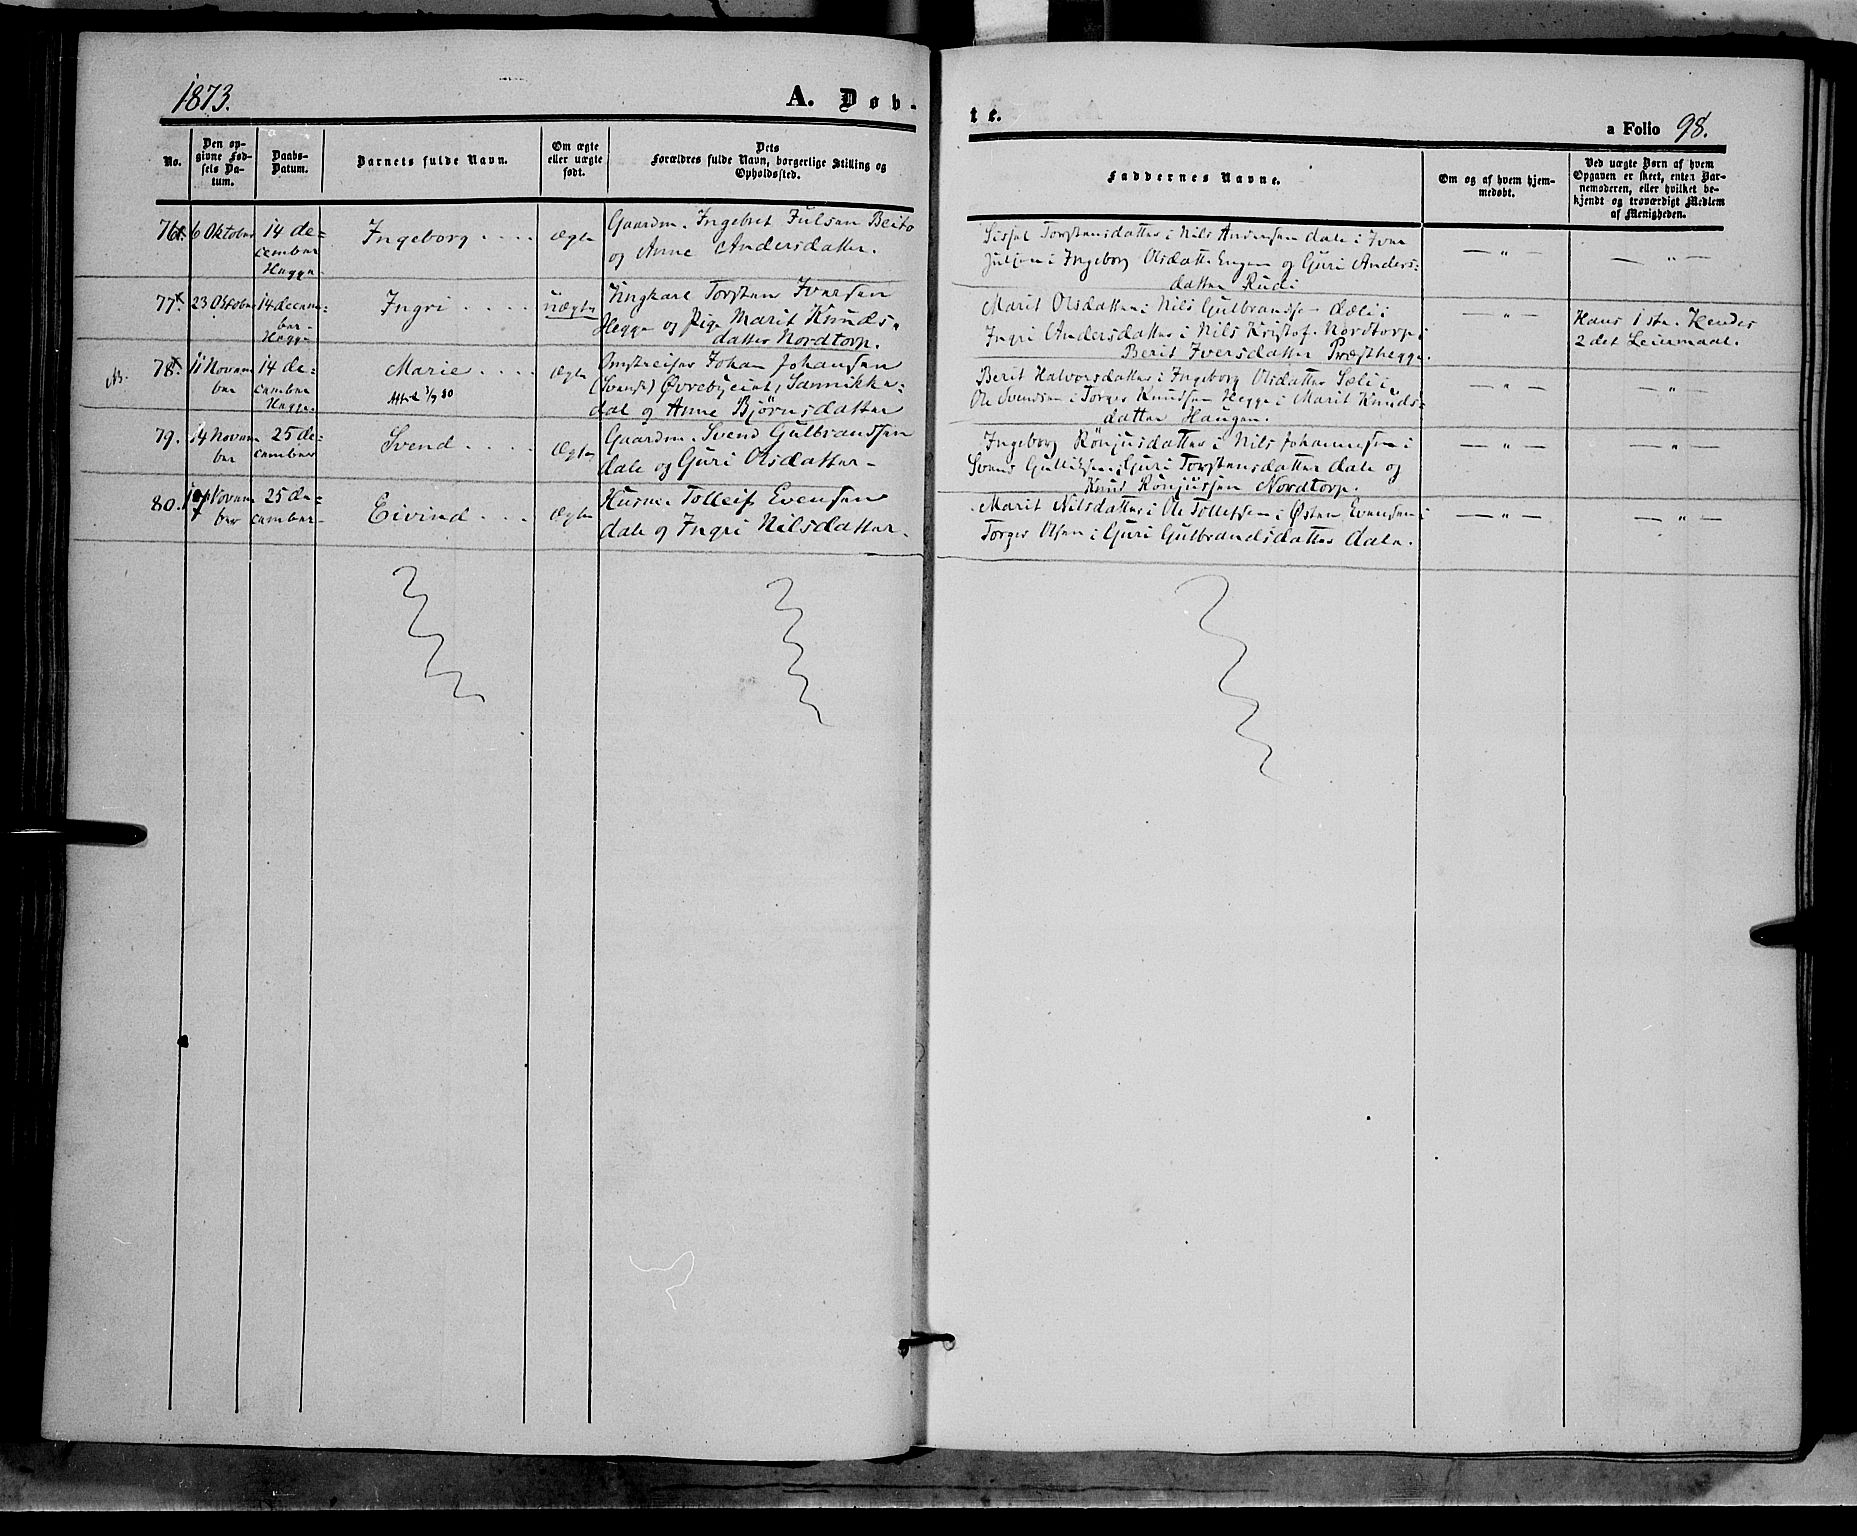 1873.
A. Døb-
te.
a Folio 98.
No.
Den op-
givne Fød-
sels Da-
tum.
Daabs-
Datum.
Barnets fulde Navn.
Om ægte
eller uægte
født.
Dets
Forældres fulde Navn, borgerlige Stilling og
Opholdssted.
Faddernes Navne.
Om og af hvem hjem-
medøbt.
Ved uægte Børn af hvem
Opgaven er skeet, enten Bar-
nemoderen, eller hvilket be-
kjendt og troværdigt Medlem
af Menigheden.
76. 6 Oktober 14 de-
cember
Hegge.
Ingeborg ægte
Gaardm. Ingebret Julsen Beito
og Anne Andersdatter.
Sissel Torstensdatter i Nils Andersen dale i Iver
Julsen i Ingeborg Olsdatter Engen og Guri Anders-
datter Rudi
— " — — " —
77. 23 Oktober 14 decem-
ber
Hegge
Ingri uægte
Ungkarl Torsten Iversen
Hegge og Pige Marit Knuds-
datter Nordtorp.
Marit Olsdatter i Nils Gulbrandsen dæli i
Ingri Andersdatter i Nils Kristof. Nordtorp i
Berit Iversdatter Præsthegge.
— " —
Hans 1ste. Hendes
2det Leiermaal.
NB. 78. 11 Novem
ber
14 de-
cember
Hegge.
Marie ægte
Attest 1/9 80
Omstreifer Johan Johansen
(Svensk) Øvrebyeiet, Sannikke-
dal og Anne Bjørnsdatter
Berit Halvorsdatter i Ingeborg Olsdatter Sæli i
Ole Svendsen i Torger Knudsen Hegge i Marit Knuds-
datter Haugen.
— " — — " —
79. 14 Novem
ber
25 de-
cember
Svend ægte
Gaardm. Svend Gulbrandsen
dale og Guri Olsdatter
Ingeborg Rønjusdatter i Nils Johannesen i
Svend Gulliksen i Guri Torstensdatter dale og
Knud Rønjussen Nordtorp.
— " — — " —
80. Novem
ber
25 de-
cember
Eivind ægte
Husm. Tolleif Evensen
dale og Ingri Nilsdatter.
Marit Nilsdatter i Ole Tollefsen i Østen Evensen i
Torger Olsen i Guri Gulbrandsdatter dale.
— " — — " —